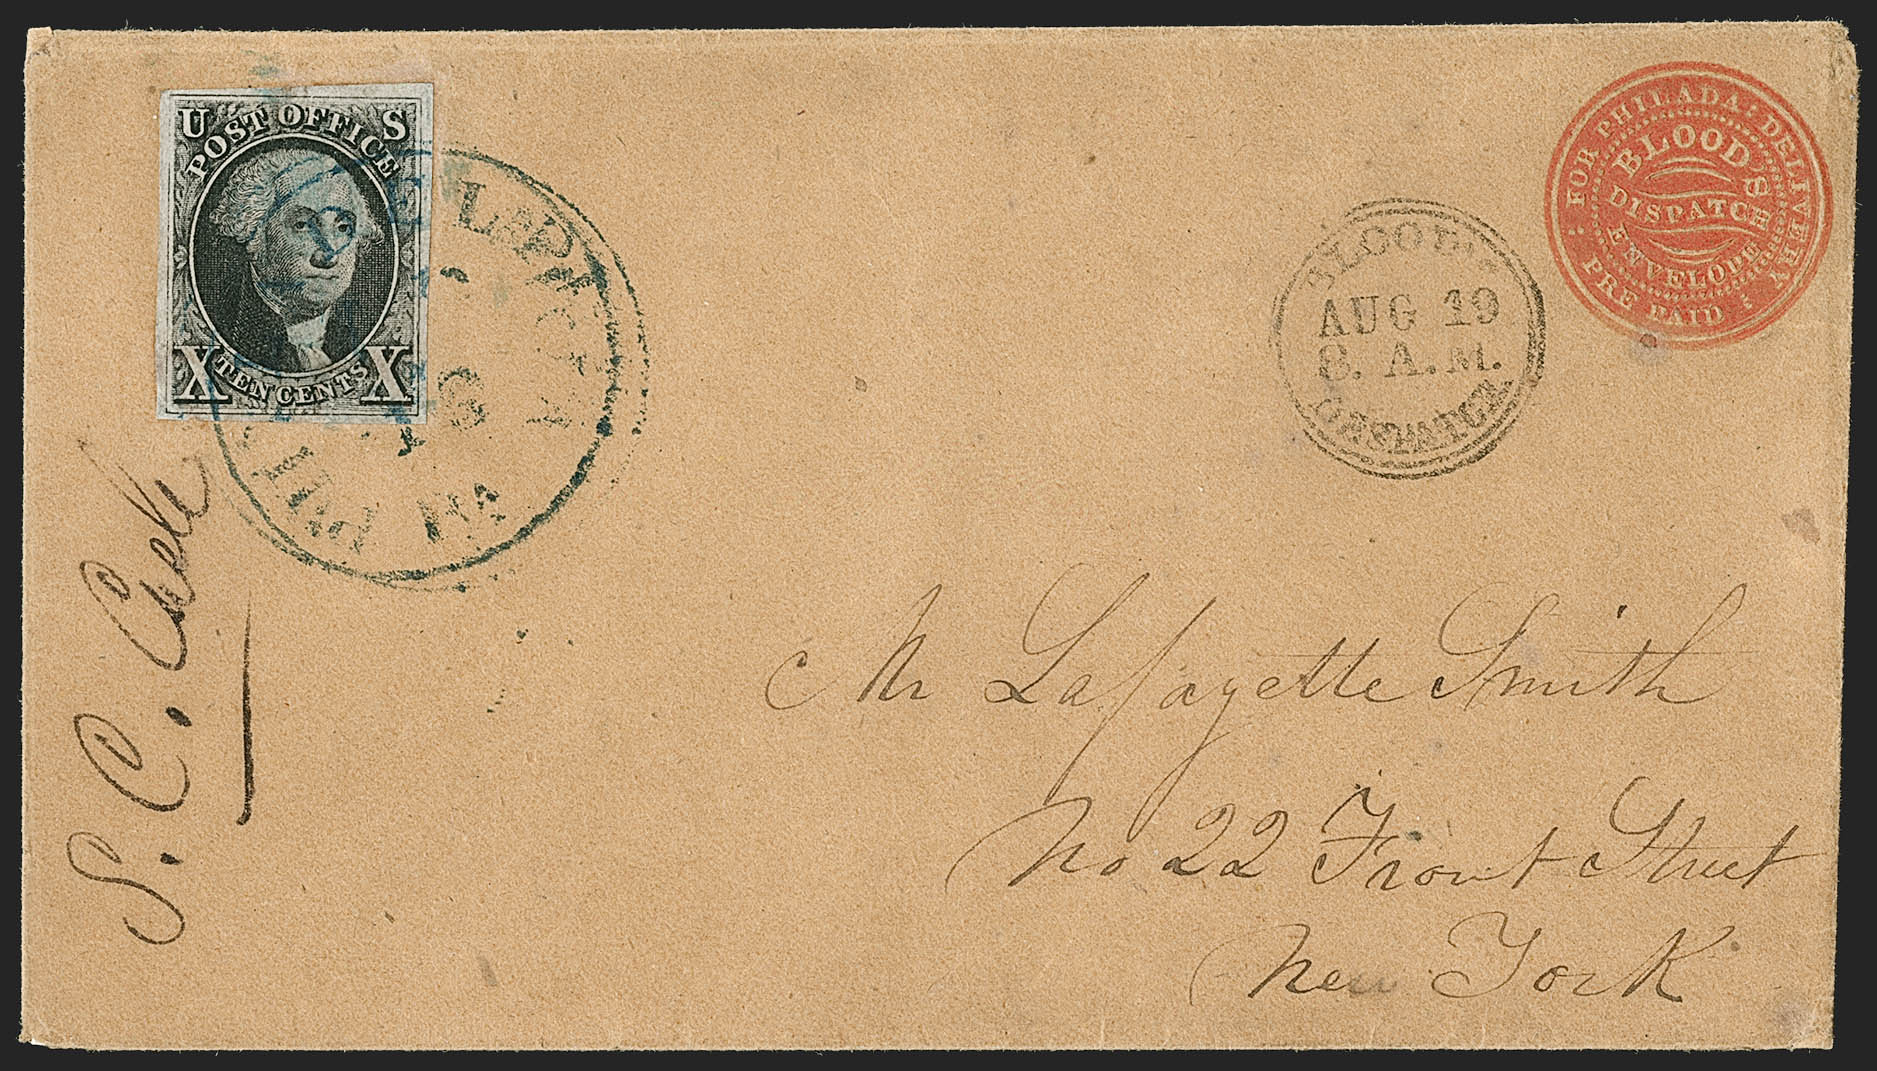 U S
POST OFFICE
X TEN CENTS X
PHILADELPHIA
Pa
FOR PHILADA. DELIVERY
BLOOD'S
DISPATCH
ENVELOPE
: PRE PAID :
BLOOD'S
AUG 19
8. A.M.
DESPATCH
S. C. Cook
Mr Lafayette Smith
No 22 Front Street
New York